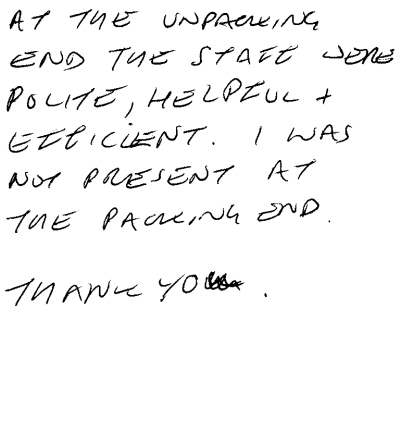 AT THE UNPACKING
END THE STAFF WERE
POLITE, HELPFUL +
EFFICIENT. I WAS
NOT PRESENT AT
THE PACKING END.
THANK YOU.